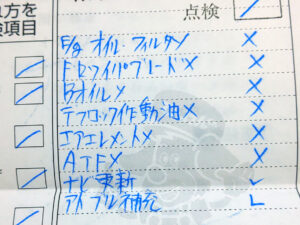 れ方を
点検
検項目
E/g オイル・フィルタ ×
F・Rワイパブレード ×
Bオイル ×
デフロック作動油 ×
エアエレメント ×
ATF ×
ナビ更新
アドブルー補充